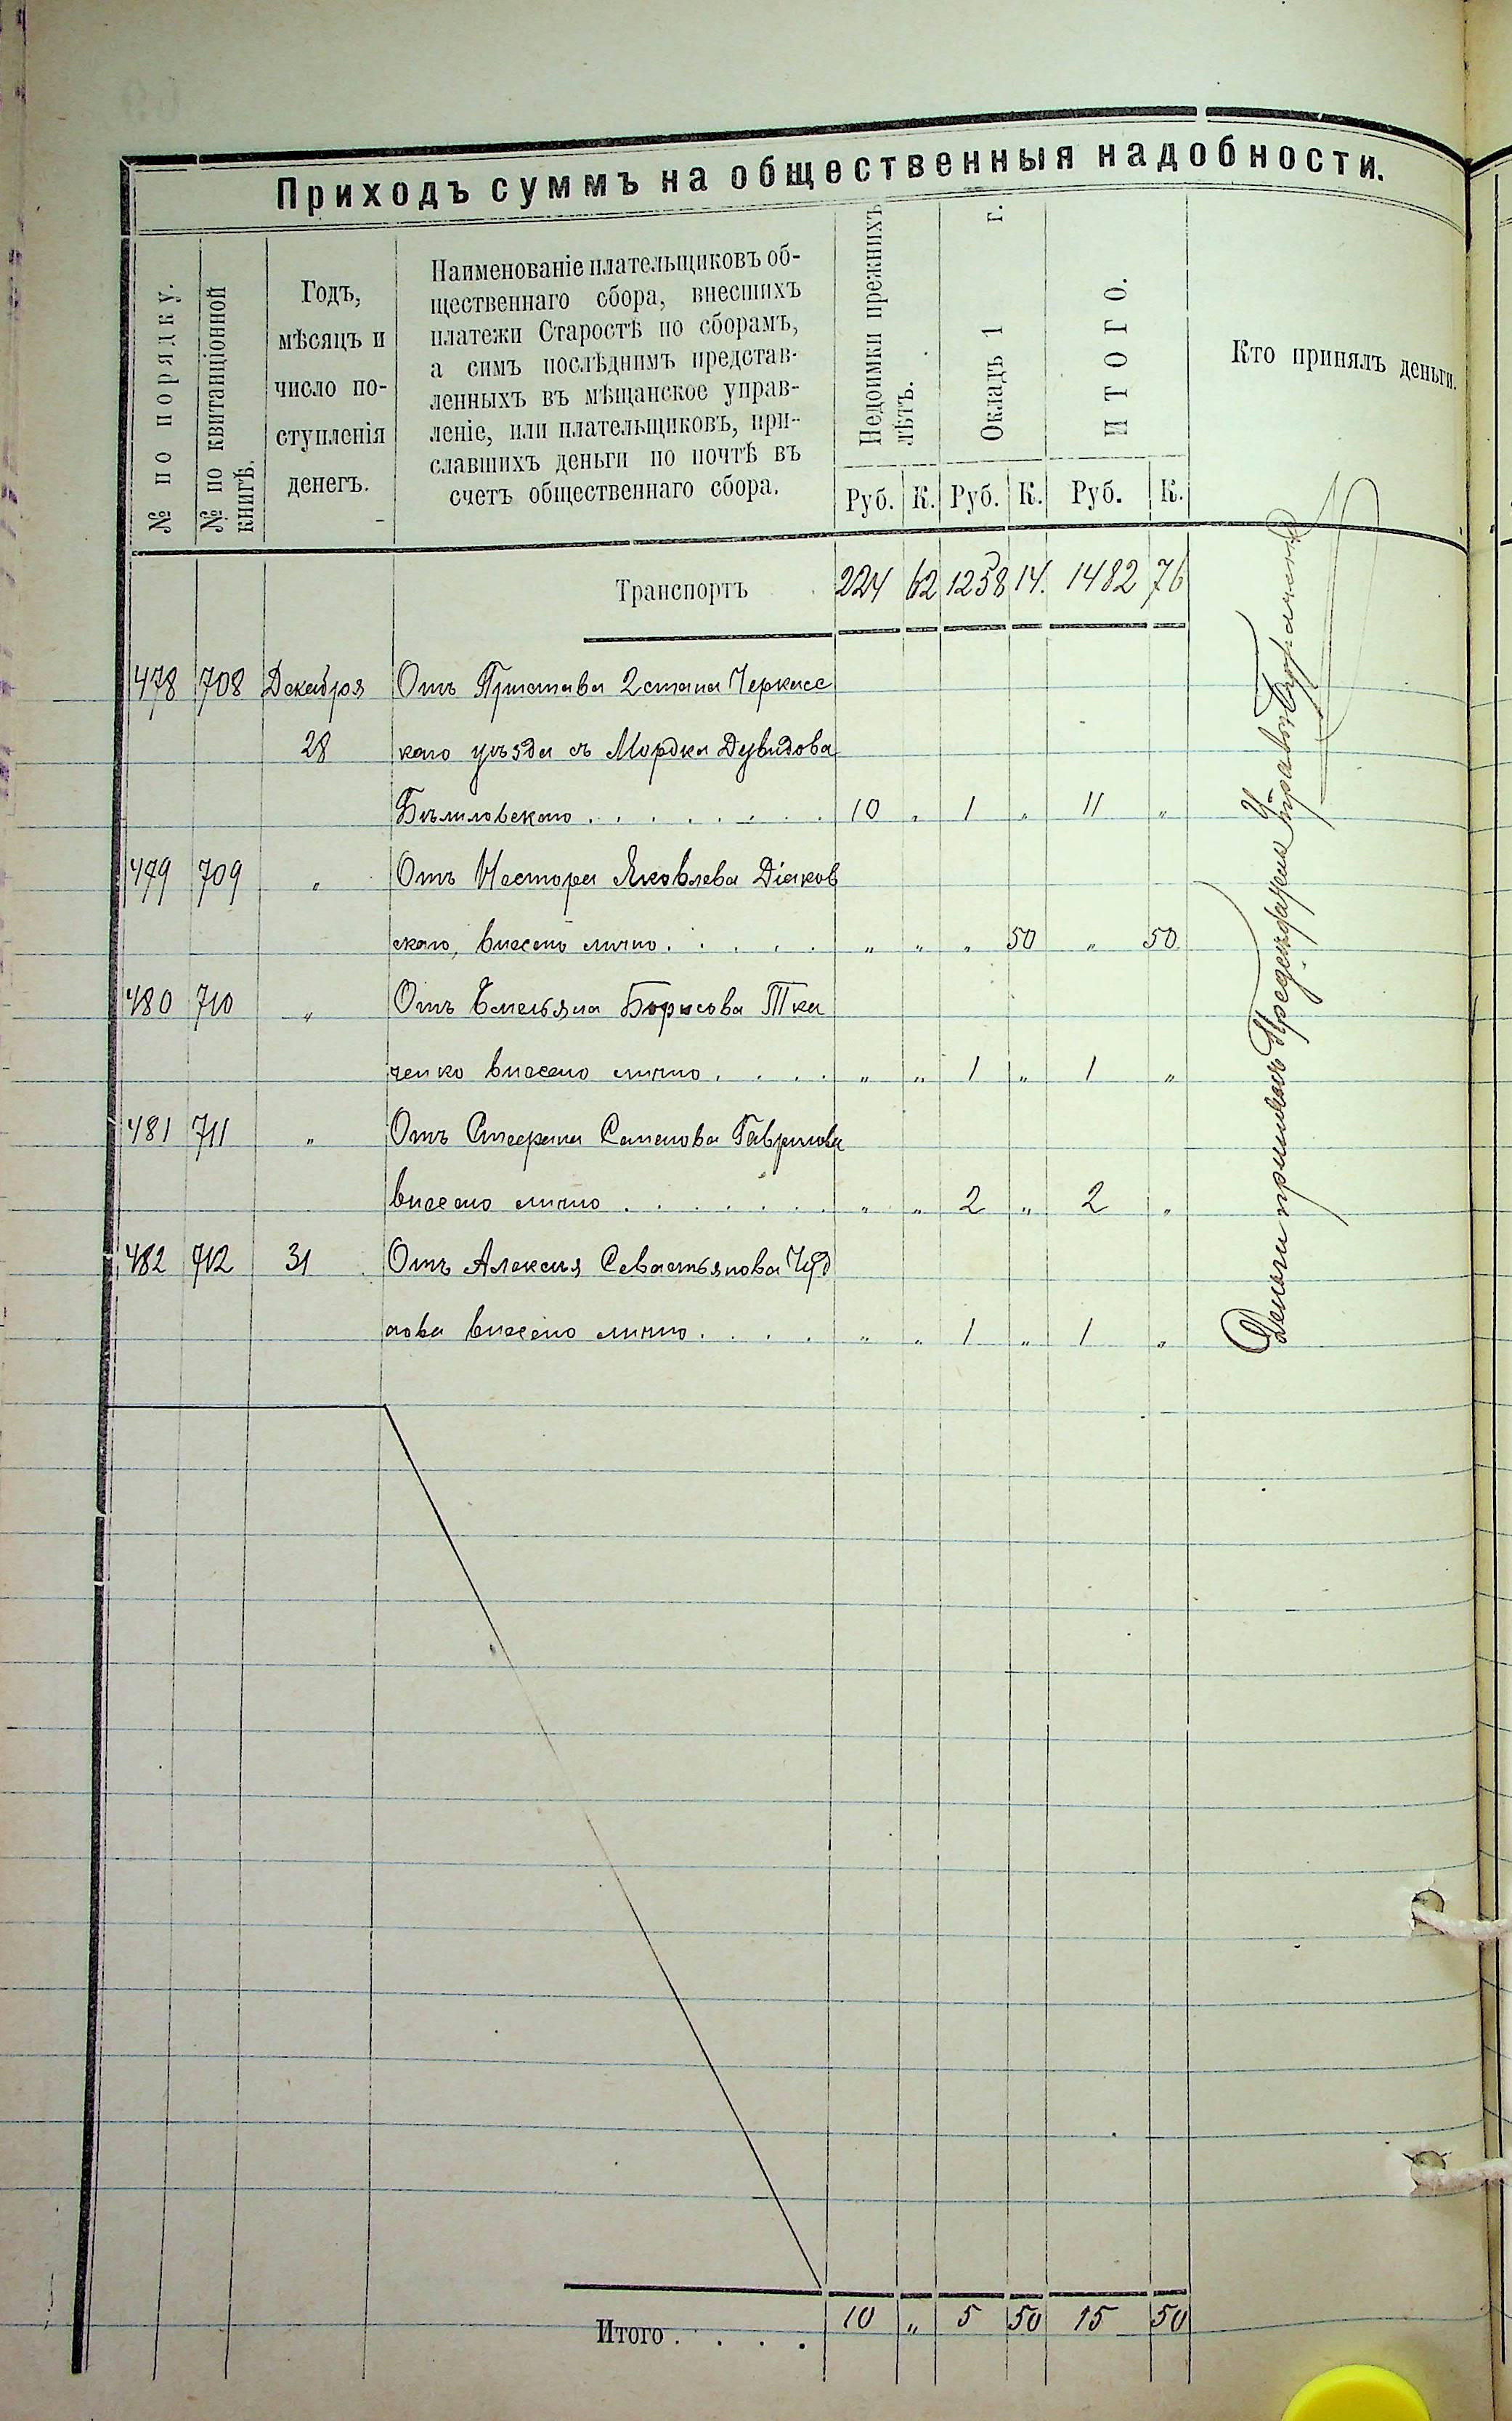 Приходъ суммъ на общественныя надобности.
№ по порядку.
№ по квитанціонной
книгѣ.
Годъ,
мѣсяцъ и
число по-
ступленія
денегъ.
Наименованіе плательщиковъ об-
щественнаго сбора, внесшихъ
платежи Старостѣ по сборамъ,
а симъ послѣднимъ представ-
ленныхъ въ мѣщанское управ-
леніе, или плательщиковъ, при-
славшихъ деньги по почтѣ въ
счетъ общественнаго сбора.
Недоимки прежнихъ
лѣтъ.
Окладъ 1 г.
ИТОГО.
Кто принялъ деньги.
Руб. К. Руб. К. Руб. К.
Транспортъ 224 62 1258 14. 1482 76
478 708 Декабря Отъ Пристава 2 стана Черкасс
28 каго уѣзда съ Мордка Дувидова
Бѣлиловскаго . . . . . . . . 10 „ 1 „ 11 „
479 709 „ Отъ Нестора Яковлева Діаков
скаго, внесено лично . . . . . „ „ „ 50 „ 50
480 710 „ Отъ Емельяна Борисова Тка
ченко внесено лично . . . . „ „ 1 „ 1 „
481 711 „ Отъ Стефана Семенова Гаврилова
внесено лично . . . . . . . „ „ 2 „ 2 „
482 712 31 Отъ Алексѣя Севастьянова Чуд
нова внесено лично . . . . „ „ 1 „ 1 „
Деньги принялъ Предсѣдатель Управы
Итого . . . . 10 „ 5 50 15 50